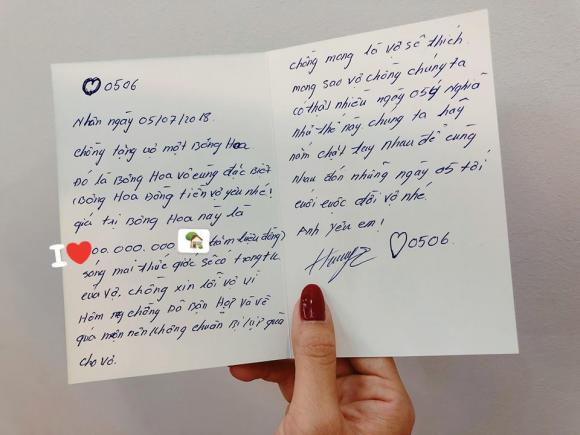 ♡0506
Nhân ngày 05/07/2018.
chồng tặng vợ một Bông Hoa.
Đó là Bông Hoa vô cùng đặc Biệt
(Bông Hoa Đồng tiền vợ yêu nhé!
giá trị Bông Hoa này là
I❤️00.000.000 trăm triệu đồng)
sáng mai thức giấc sẽ có trong tk
của vợ. chồng xin lỗi vợ vì
Hôm nay chồng Đã Bận Họp và về
quá muộn nên không chuẩn Bị kịp quà
cho vợ.
chồng mong là vợ sẽ thích.
mong sao vợ chồng chúng ta
có thật nhiều ngày 05 ý nghĩa
như thế này chúng ta hãy
nắm chặt tay nhau để cùng
nhau đón những ngày 05 tới
cuối cuộc đời vợ nhé.
Anh yêu em!
♡0506.